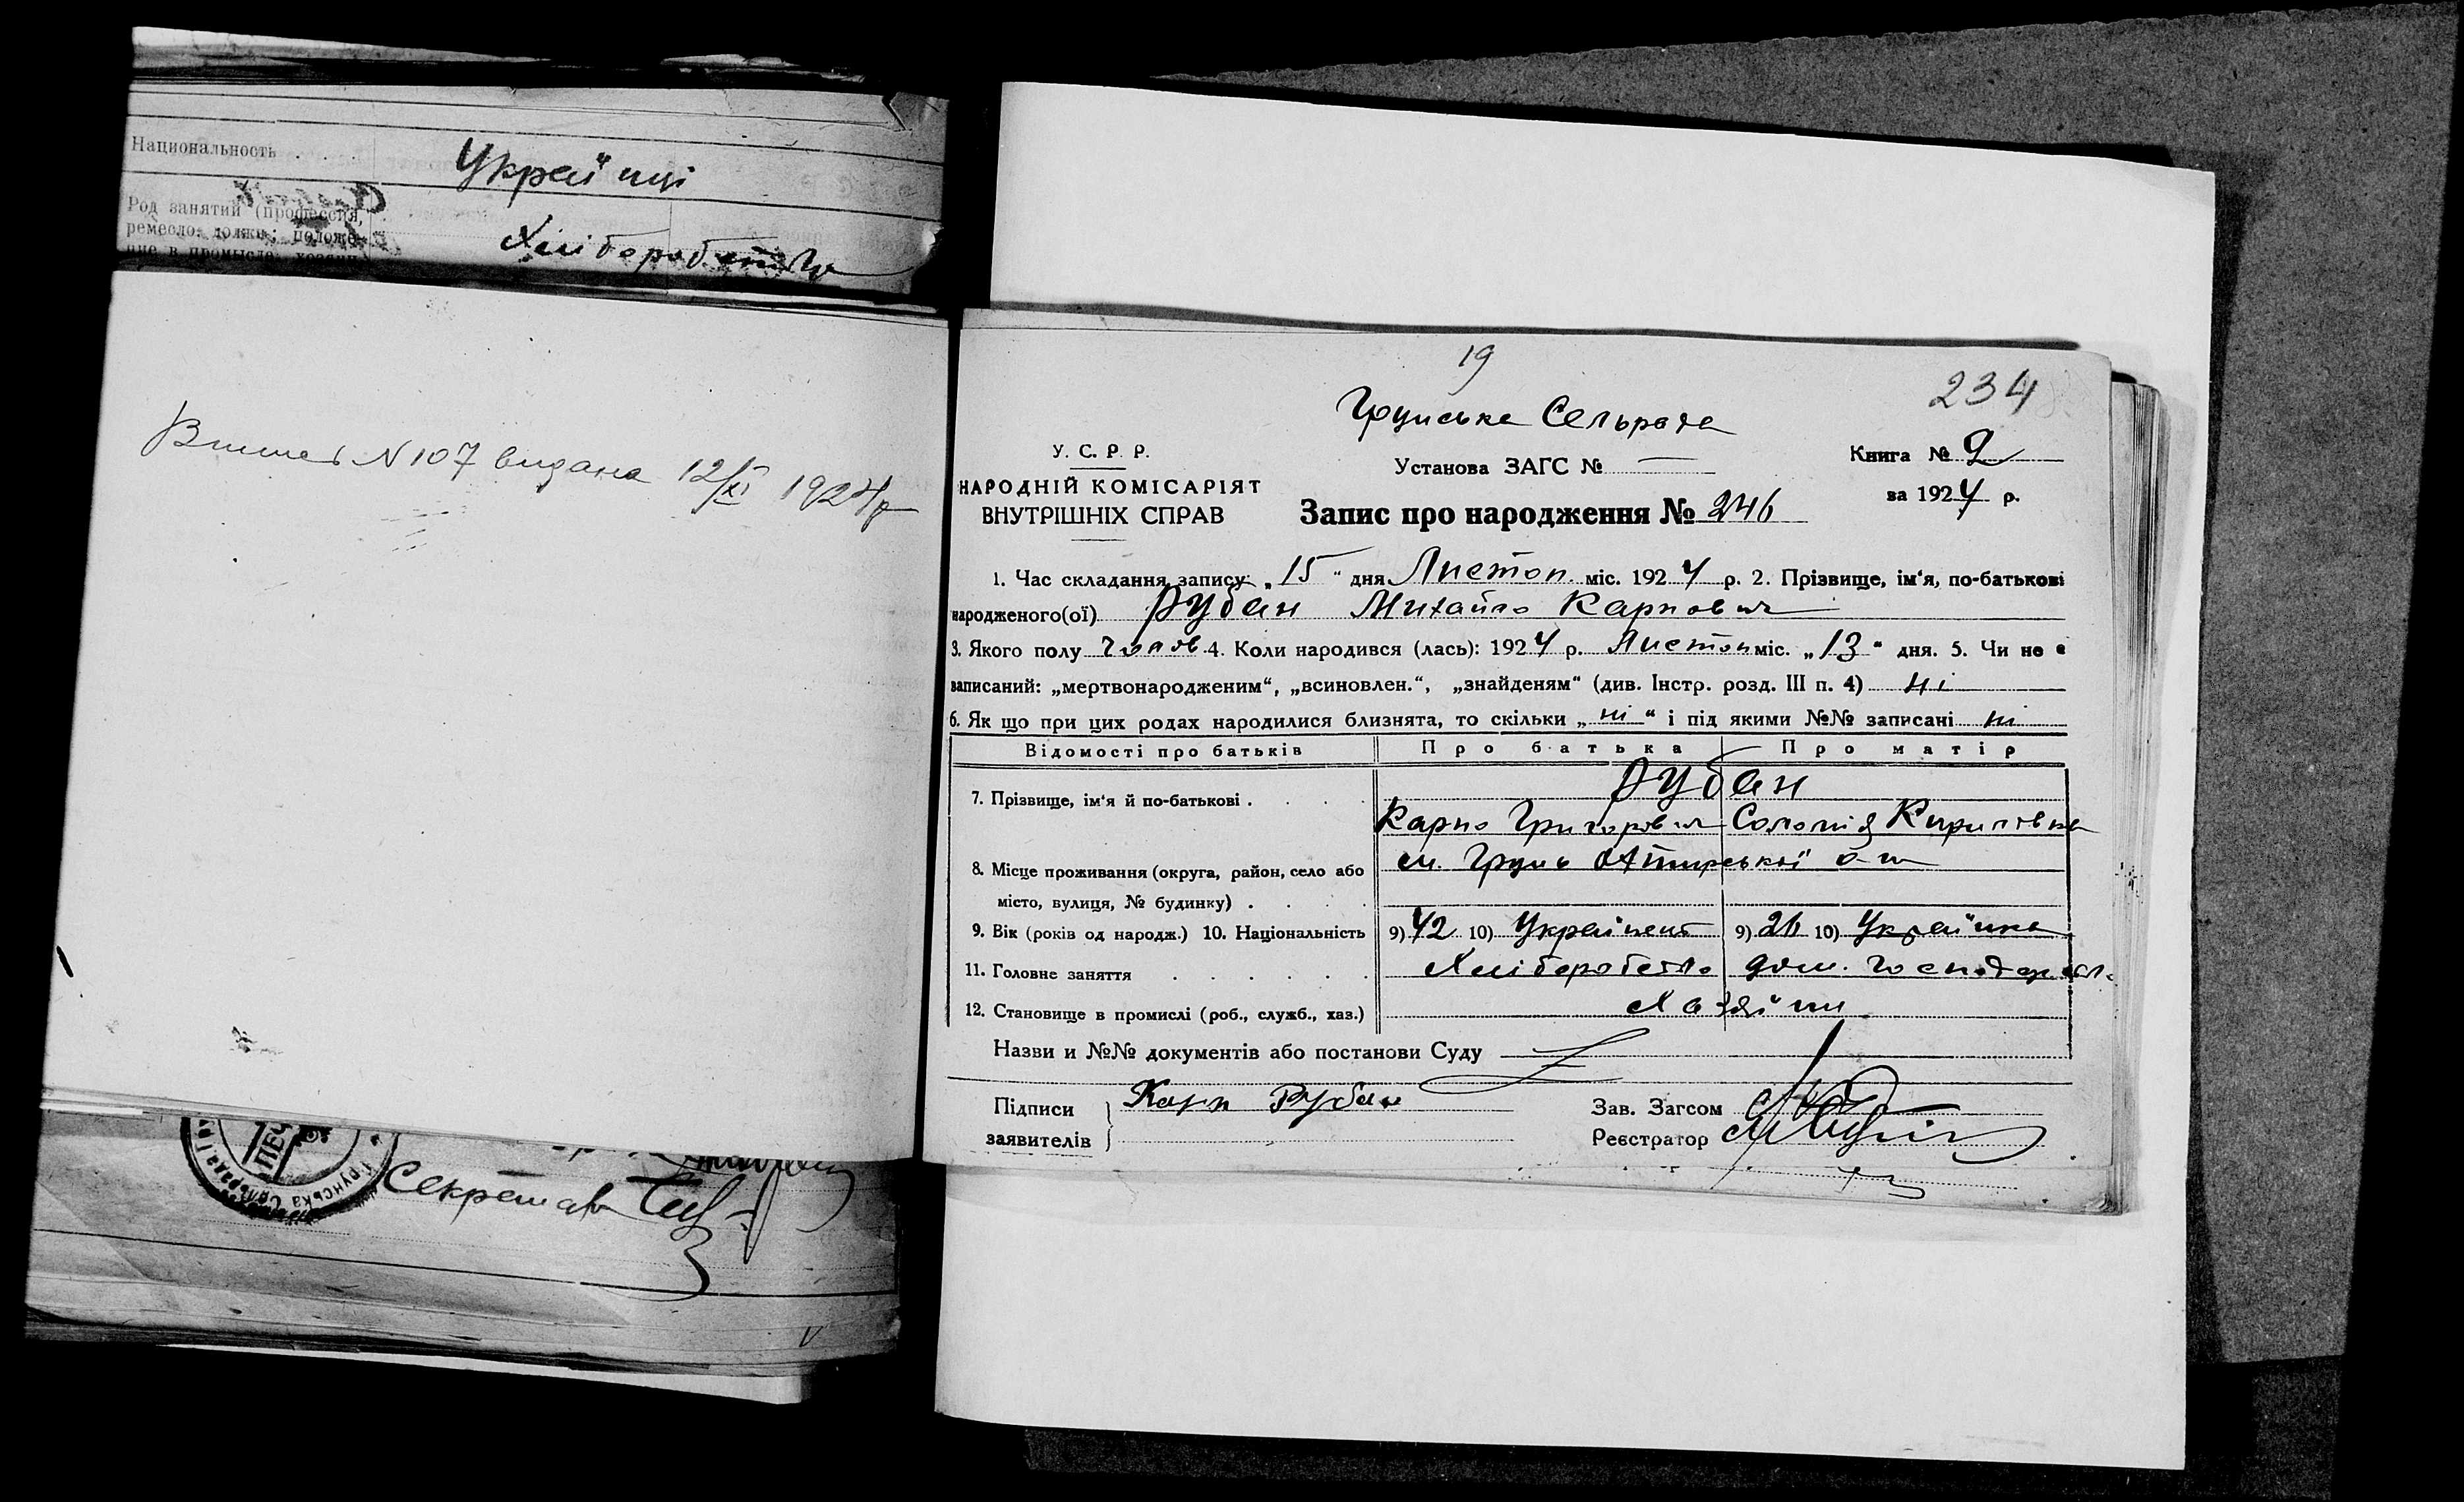 Национальность . . .
Українці
Род занятий (профессия,
ремесло, должн.; положе-
ние в промысле, хозяин
Хліборобство
Выпись N 107 видана 12/XI 1924 р
ПЕЧ
Грунська Сільрада
Секретарь
19
234
Грунська Сельрада
У. С. Р. Р.
НАРОДНІЙ КОМІСАРІЯТ
ВНУТРІШНІХ СПРАВ
Установа ЗАГС № —
Книга № 2
за 1924 р.
Запис про народження № 246
1. Час складання запису: „15" дня Листоп. міс. 1924 р. 2. Прізвище, ім'я, по-батькові
народженого(ої) Рубан Михайло Карпович
3. Якого полу Чолов. 4. Коли народився (лась): 1924 р. Листоп міс. „13" дня. 5. Чи не є
записаний: „мертвонародженим", „всиновлен.", „знайденям" (див. Інстр. розд. III п. 4) ні
6. Як що при цих родах народилися близнята, то скільки „ні" і під якими №№ записані ні
Відомості про батьків Про батька Про матір
7. Прізвище, ім'я й по-батькові . Рубан
Карпо Григорович Соломія Кирилівна
8. Місце проживання (округа, район, село або
місто, вулиця, № будинку) .
м. Грунь Охтирської о-ги
9. Вік (років од народж.) 10. Національність 9) 42 10) Українець 9) 26 10) Українка
11. Головне заняття Хліборобство дом. господарство
12. Становище в промислі (роб., служб., хаз.) Хазяїни
Назви и №№ документів або постанови Суду
Підписи
заявителів
Карп Рубан
Зав. Загсом
Реєстратор